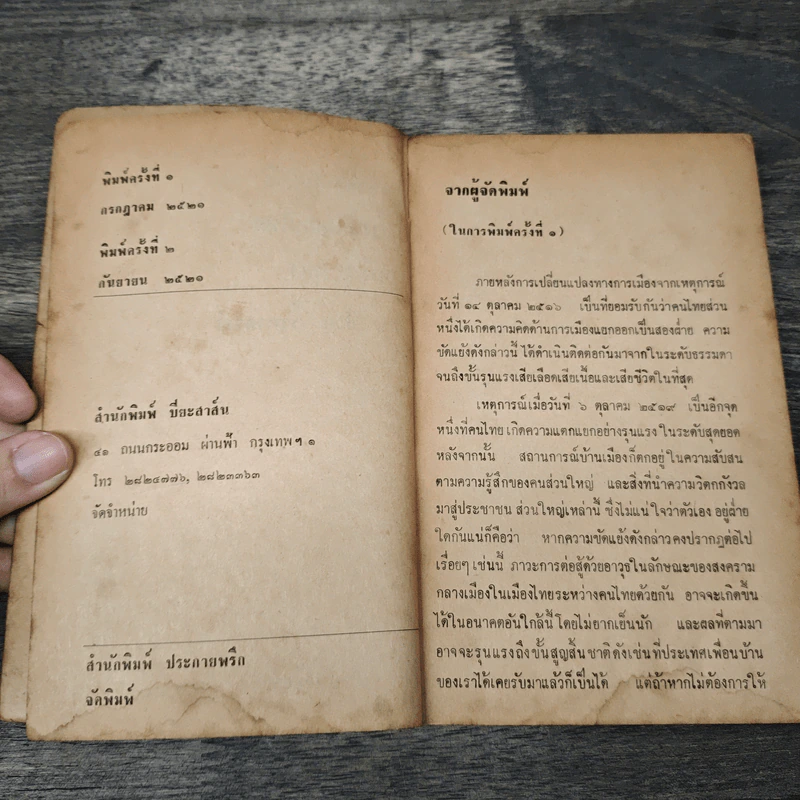 พิมพ์ครั้งที่ ๑
กรกฎาคม ๒๕๒๑
พิมพ์ครั้งที่ ๒
กันยายน ๒๕๒๑
สำนักพิมพ์ ปิยะสาส์น
๔๑ ถนนกระออม ผ่านฟ้า กรุงเทพฯ ๑
โทร ๒๘๒๔๗๗๖, ๒๘๒๓๓๖๓
จัดจำหน่าย
สำนักพิมพ์ ประกายพรึก
จัดพิมพ์
จากผู้จัดพิมพ์
(ในการพิมพ์ครั้งที่ ๑)
ภายหลังการเปลี่ยนแปลงทางการเมืองจากเหตุการณ์
วันที่ ๑๔ ตุลาคม ๒๕๑๖ เป็นที่ยอมรับกันว่าคนไทยส่วน
หนึ่งได้เกิดความคิดด้านการเมืองแยกออกเป็นสองฝ่าย ความ
ขัดแย้งดังกล่าวนี้ ได้ดำเนินติดต่อกันมาจากในระดับธรรมดา
จนถึงขั้นรุนแรงเสียเลือดเสียเนื้อและเสียชีวิตในที่สุด
เหตุการณ์เมื่อวันที่ ๖ ตุลาคม ๒๕๑๙ เป็นอีกจุด
หนึ่งที่คนไทย เกิดความแตกแยกอย่างรุนแรง ในระดับสุดยอด
หลังจากนั้น สถานการณ์บ้านเมืองก็ตกอยู่ ในความสับสน
ตามความรู้สึกของคนส่วนใหญ่ และสิ่งที่นำความวิตกกังวล
มาสู่ประชาชน ส่วนใหญ่เหล่านี้ ซึ่งไม่แน่ ใจว่าตัวเอง อยู่ฝ่าย
ใดกันแน่ก็คือว่า หากความขัดแย้งดังกล่าว คงปรากฏต่อไป
เรื่อยๆ เช่นนี้ ภาวะการต่อสู้ด้วยอาวุธในลักษณะของสงคราม
กลางเมืองในเมืองไทยระหว่างคนไทยด้วยกัน อาจจะเกิดขึ้น
ได้ในอนาคตอันใกล้นี้ โดยไม่ยากเย็นนัก และผลที่ตามมา
อาจจะรุนแรงถึงขั้น สูญสิ้น ชาติ ดังเช่น ที่ประเทศเพื่อนบ้าน
ของเราได้เคยรับมาแล้วก็เป็นได้ แต่ถ้าหากไม่ต้องการให้